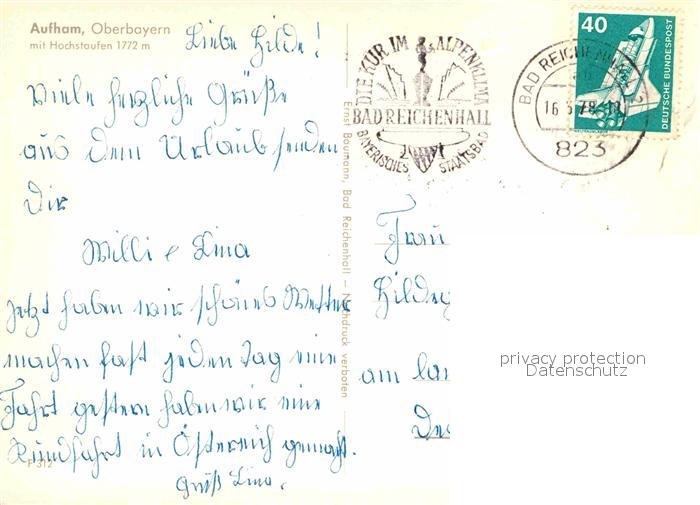 Aufham, Oberbayern
mit Hochstaufen 1772 m
Liebe Hilde!
Viele herzliche Grüße
aus dem Urlaub senden
Dir
Willi & Lina
Jetzt haben wir schönes Wetter
machen fast jeden Tag eine
Fahrt gestern haben wir eine
Rundfahrt in Österreich gemacht.
Gruß Lina.
P 312
Ernst Baumann, Bad Reichenhall — Nachdruck verboten
DIE KUR IM ALPENKLIMA
BAD REICHENHALL
BAYERISCHES STAATSBAD
BAD REICHENHALL
823
40
DEUTSCHE BUNDESPOST
Frau
am
privacy protection
Datenschutz